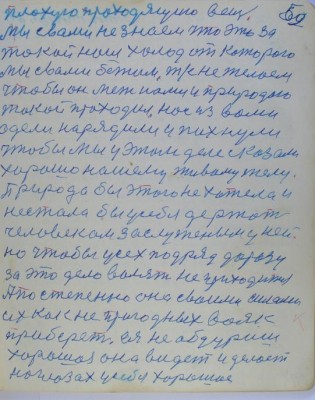 плохую проходящую вещ. 52
Мы с вами не знаем что это за
такой наш холод от которого
мы с вами бежим, тк не желаем
чтобы он меж нами и природою
такой проходил, нас из вами
одели нарядили и пихнули
чтобы мы у этом деле сказали
хорошо нашему живому телу.
Природа бы этого не хотела и
нестала бы у себя держать
человеком заслуженым у ней.
но чтобы усех подряд дорогу
за это дело валят не приходится
А постепенно она своими силами
их как не пригодных
приберет. ея не абдуриш
хорошая она видет и делает
на глазах у себя хорошое